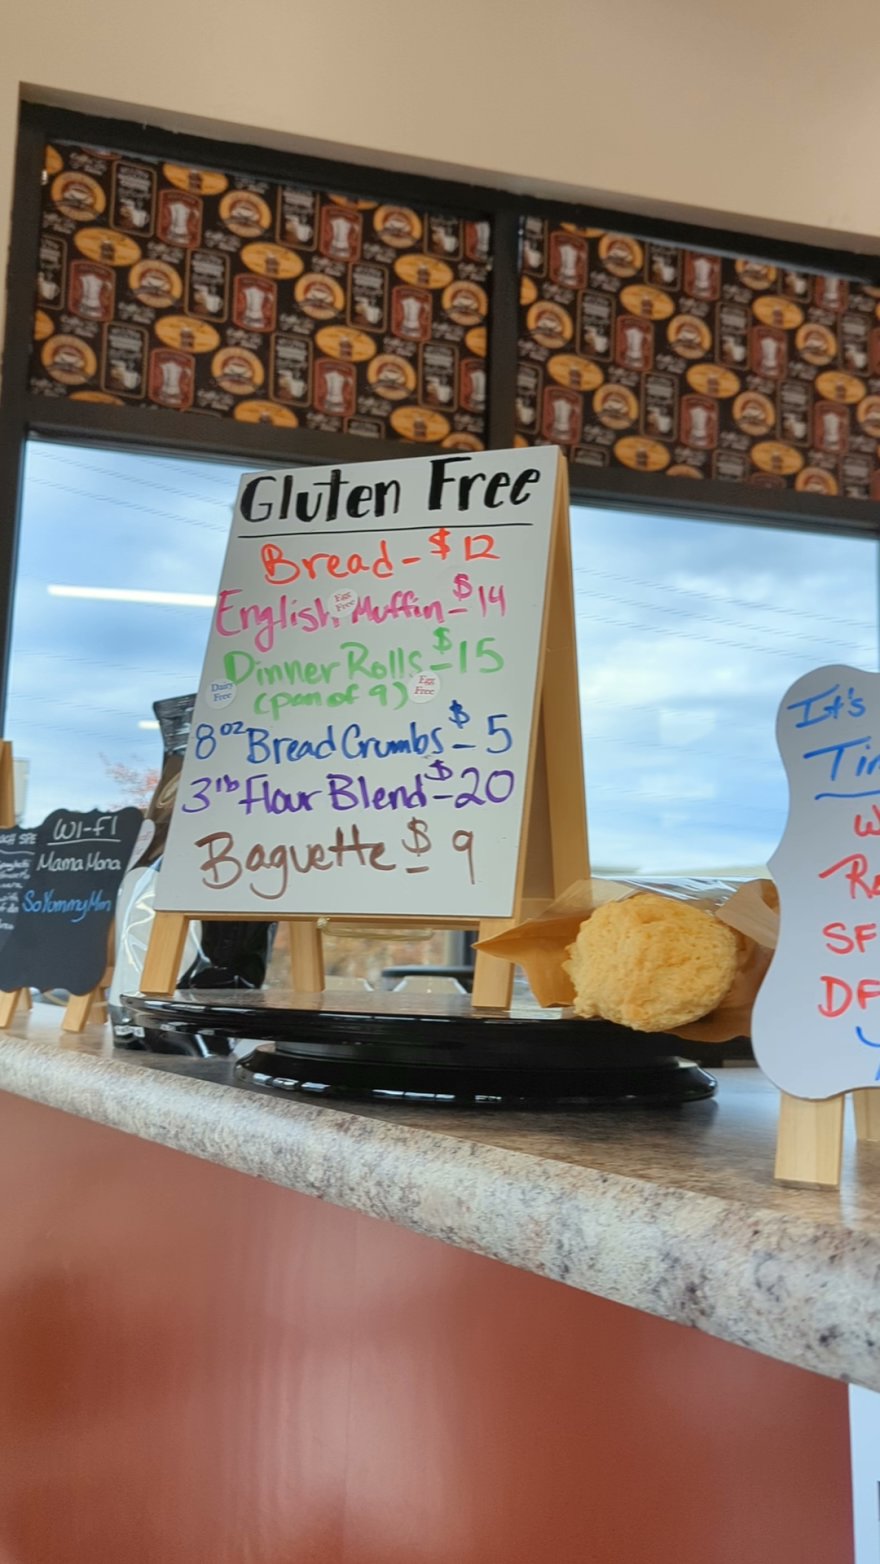 Gluten Free
Bread - $12
English Muffin - $14
Egg
Free
Dinner Rolls - $15
(pan of 9)
Dairy
Free
Egg
Free
8oz Bread Crumbs - $5
3lb Flour Blend - $20
Baguette $9
WI-FI
Mama Mona
SoYummyMm
It's
SF
DF